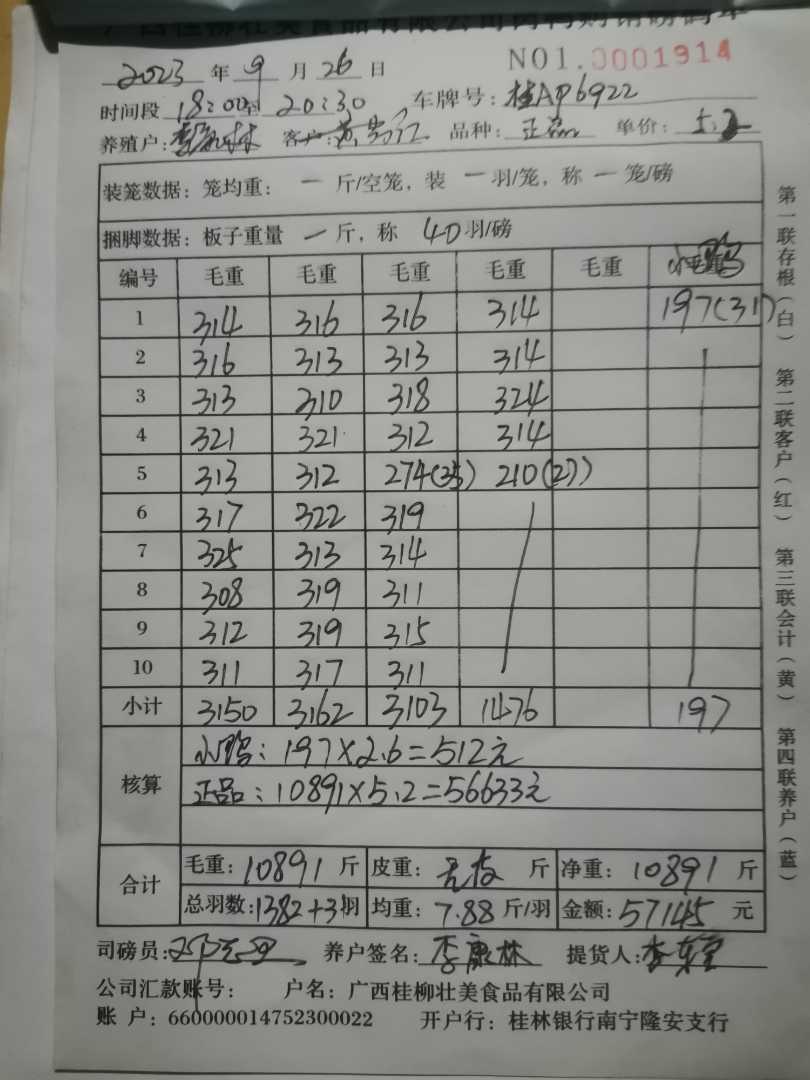 广西桂柳壮美食品有限公司肉鸭购销磅码单
2023 年 9 月 26 日 NO1.0001914
时间段 18:00到 20:30 车牌号: 桂AP6922
养殖户: 李康林 客户: 品种: 正品 单价: 5.2
装笼数据: 笼均重: 一 斤/空笼, 装 一 羽/笼, 称 一 笼/磅
捆脚数据: 板子重量 一 斤, 称 40 羽/磅
编号 毛重 毛重 毛重 毛重 毛重 小鸭
1 314 316 316 314 197(31)
2 316 313 313 314
3 313 310 318 324
4 321 321 312 314
5 313 312 274(35) 210(27)
6 317 322 319
7 325 313 314
8 308 319 311
9 312 319 315
10 311 317 311
小计 3150 3162 3103 1476 197
核算 小鸭: 197×2.6=512元
正品: 10891×5.2=56633元
合计 毛重: 10891 斤 皮重: 斤 净重: 10891 斤
总羽数: 1382+31羽 均重: 7.88 斤/羽 金额: 57145 元
司磅员: 养户签名: 李康林 提货人:
公司汇款账号: 户名: 广西桂柳壮美食品有限公司
账 户: 660000014752300022 开户行: 桂林银行南宁隆安支行
第一联存根(白) 第二联客户(红) 第三联会计(黄) 第四联养户(蓝)